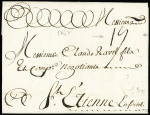 Messieurs
Messieurs Claude Ravel fils
Et Comp.e Negotiants
St Etienne